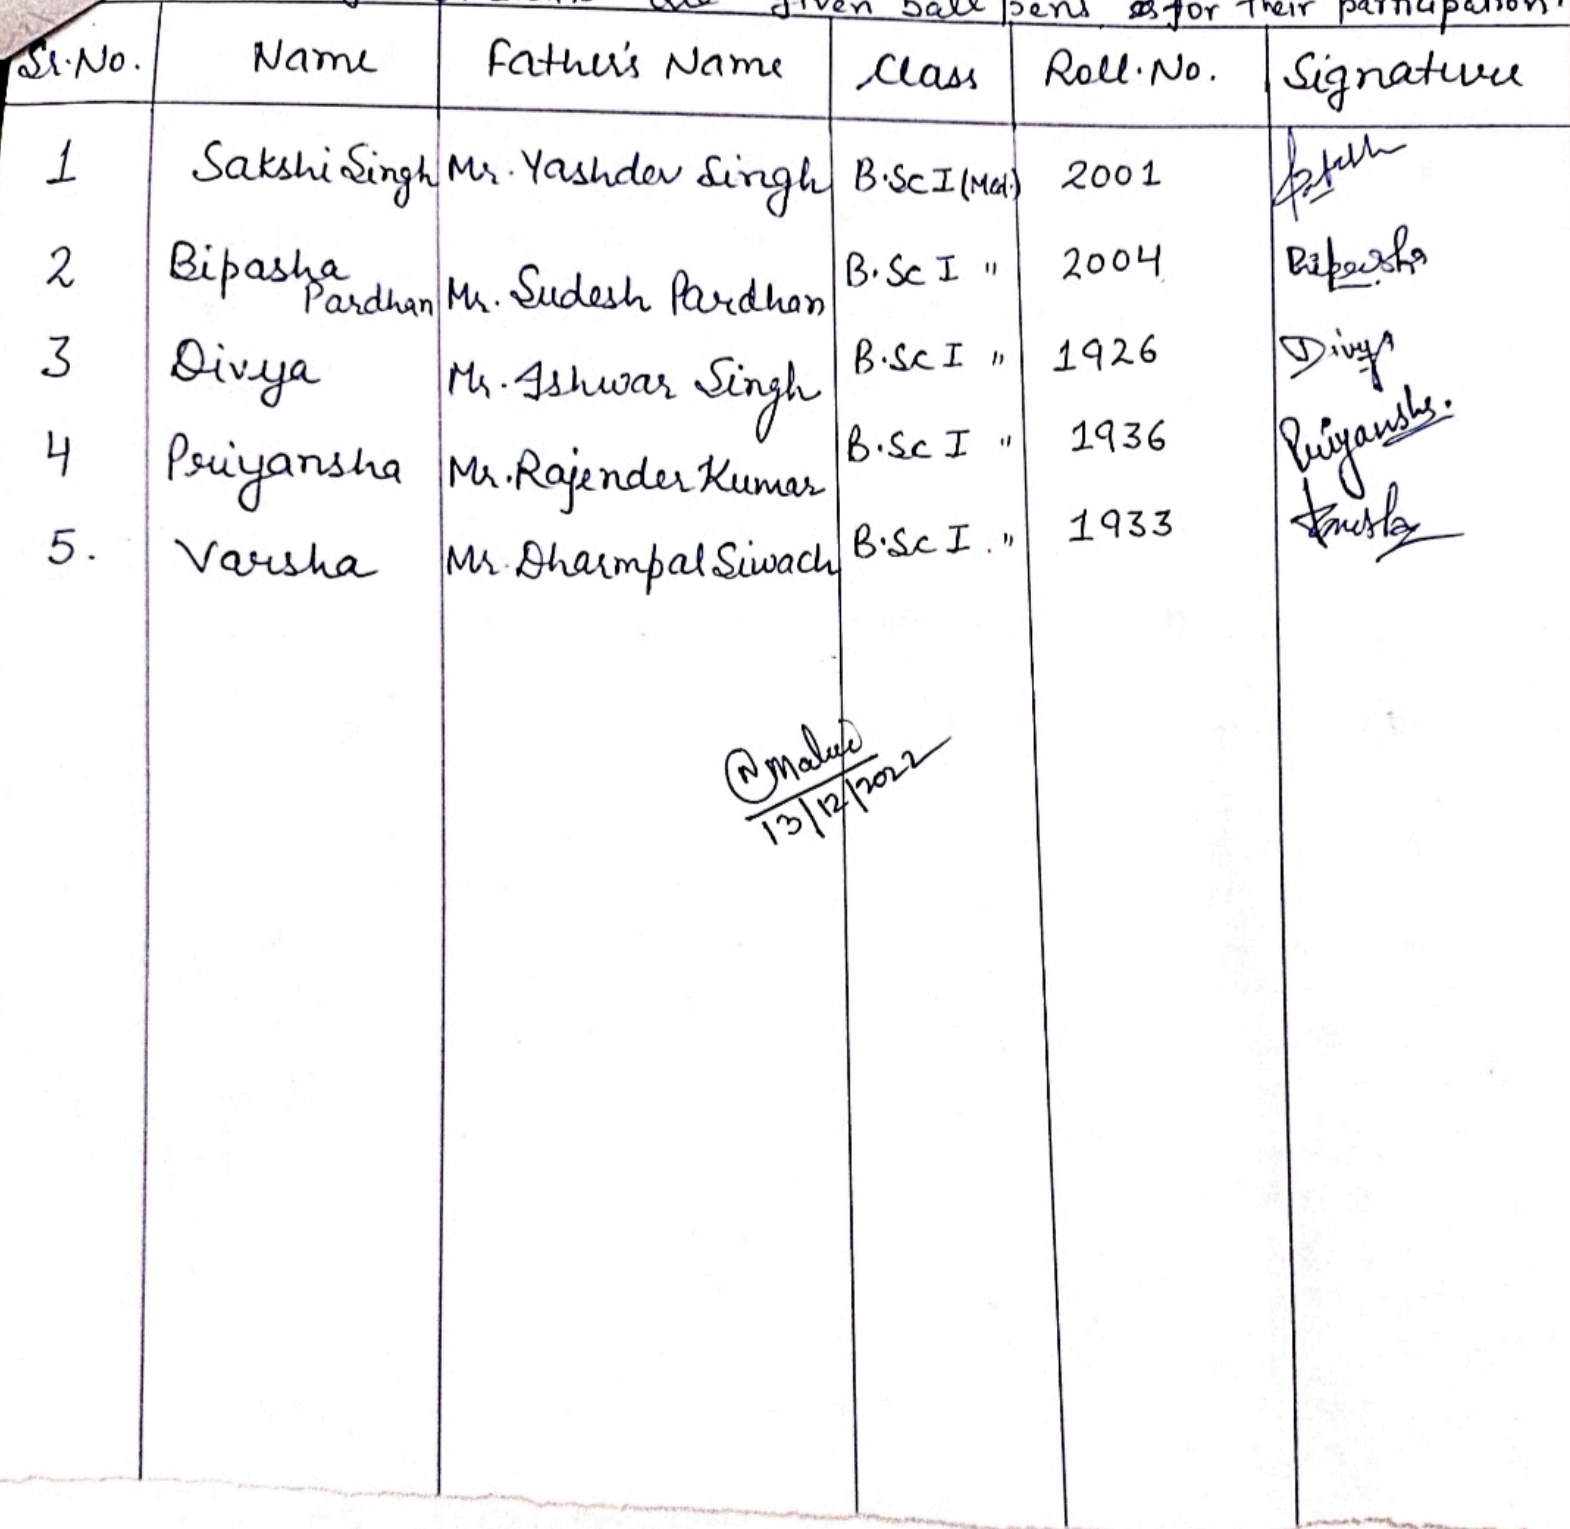 given ball pens as for their participation.
Sr.No. Name Father's Name Class Roll.No. Signature
1 Sakshi Singh Mr. Yashdev Singh B.Sc I (Med.) 2001
2 Bipasha Pardhan Mr. Sudesh Pardhan B.Sc I " 2004 Bipasha
3 Divya Mr. Ishwar Singh B.Sc I " 1926 Divya
4 Priyansha Mr. Rajender Kumar B.Sc I " 1936 Priyansha.
5. Varsha Mr. Dharmpal Siwach B.Sc I. " 1933
13/12/2022